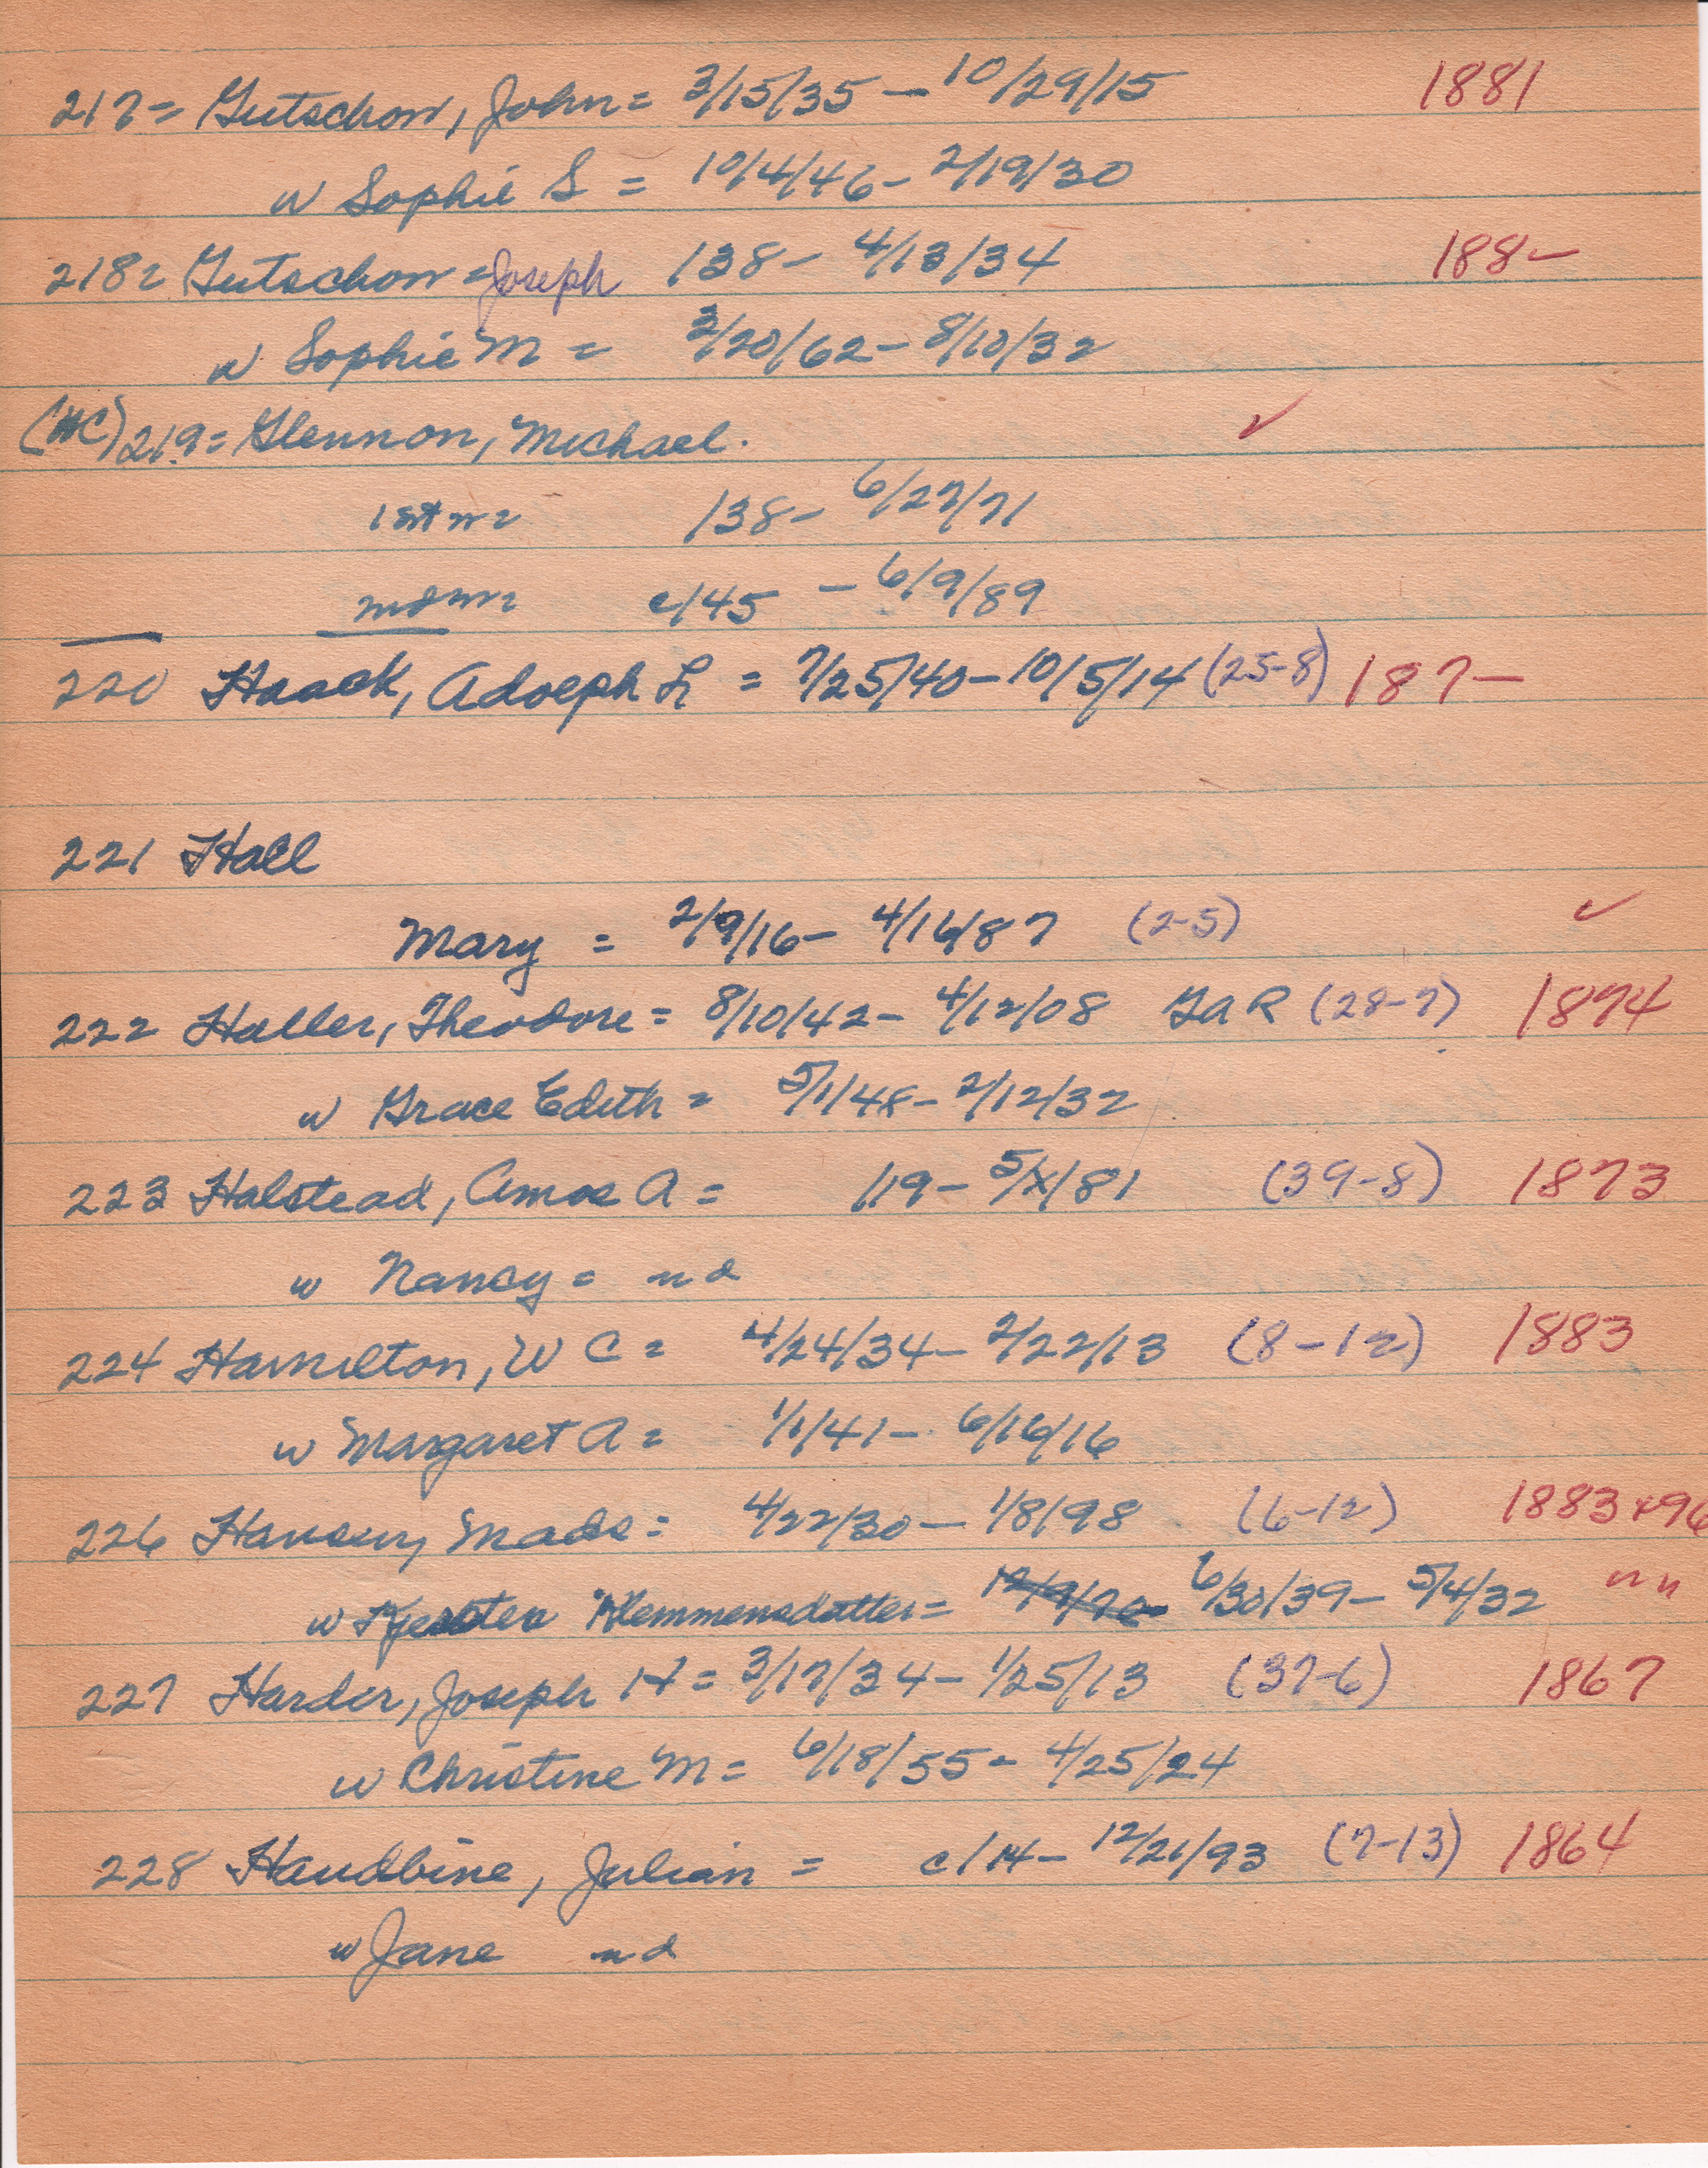 217= Gutschow, John = 3/15/35 — 10/29/15 1881
w Sophie S = 10/4/46 - 2/19/30
218= Gutschow = Joseph /38 - 4/13/34 188-
w Sophie M = 3/20/62 - 8/10/32
(HC) 219= Glennon, Michael. ✓
1st w= /38 - 6/27/71
2nd w= c/45 - 6/9/89
220 Haack, Adolph L = 7/25/40 - 10/5/14 (25-8) 187-
221 Hall
Mary = 2/9/16 - 4/16/87 (2-5) ✓
222 Haller, Theodore = 8/10/42 - 4/12/08 GAR (28-7) 1874
w Grace Edith = 5/1/48 - 2/12/32
223 Halstead, Amos A = /19 - 5/x/81 (39-8) 1873
w Nancy = nd
224 Hamilton, W C = 4/24/34 - 2/22/13 (8-12) 1883
w Margaret A = 1/1/41 - 6/16/16
226 Hansen, Mads = 4/22/30 - 1/8/98 (6-12) 1883+96
w Klemmensdatter = 12/9/70 - 6/30/39 - 5/4/32 " "
227 Harder, Joseph H = 3/17/34 - 1/25/13 (37-6) 1867
w Christine M = 6/18/55 - 4/25/24
228 Haudbine, Julian = c/14 - 12/21/93 (7-13) 1864
w Jane nd